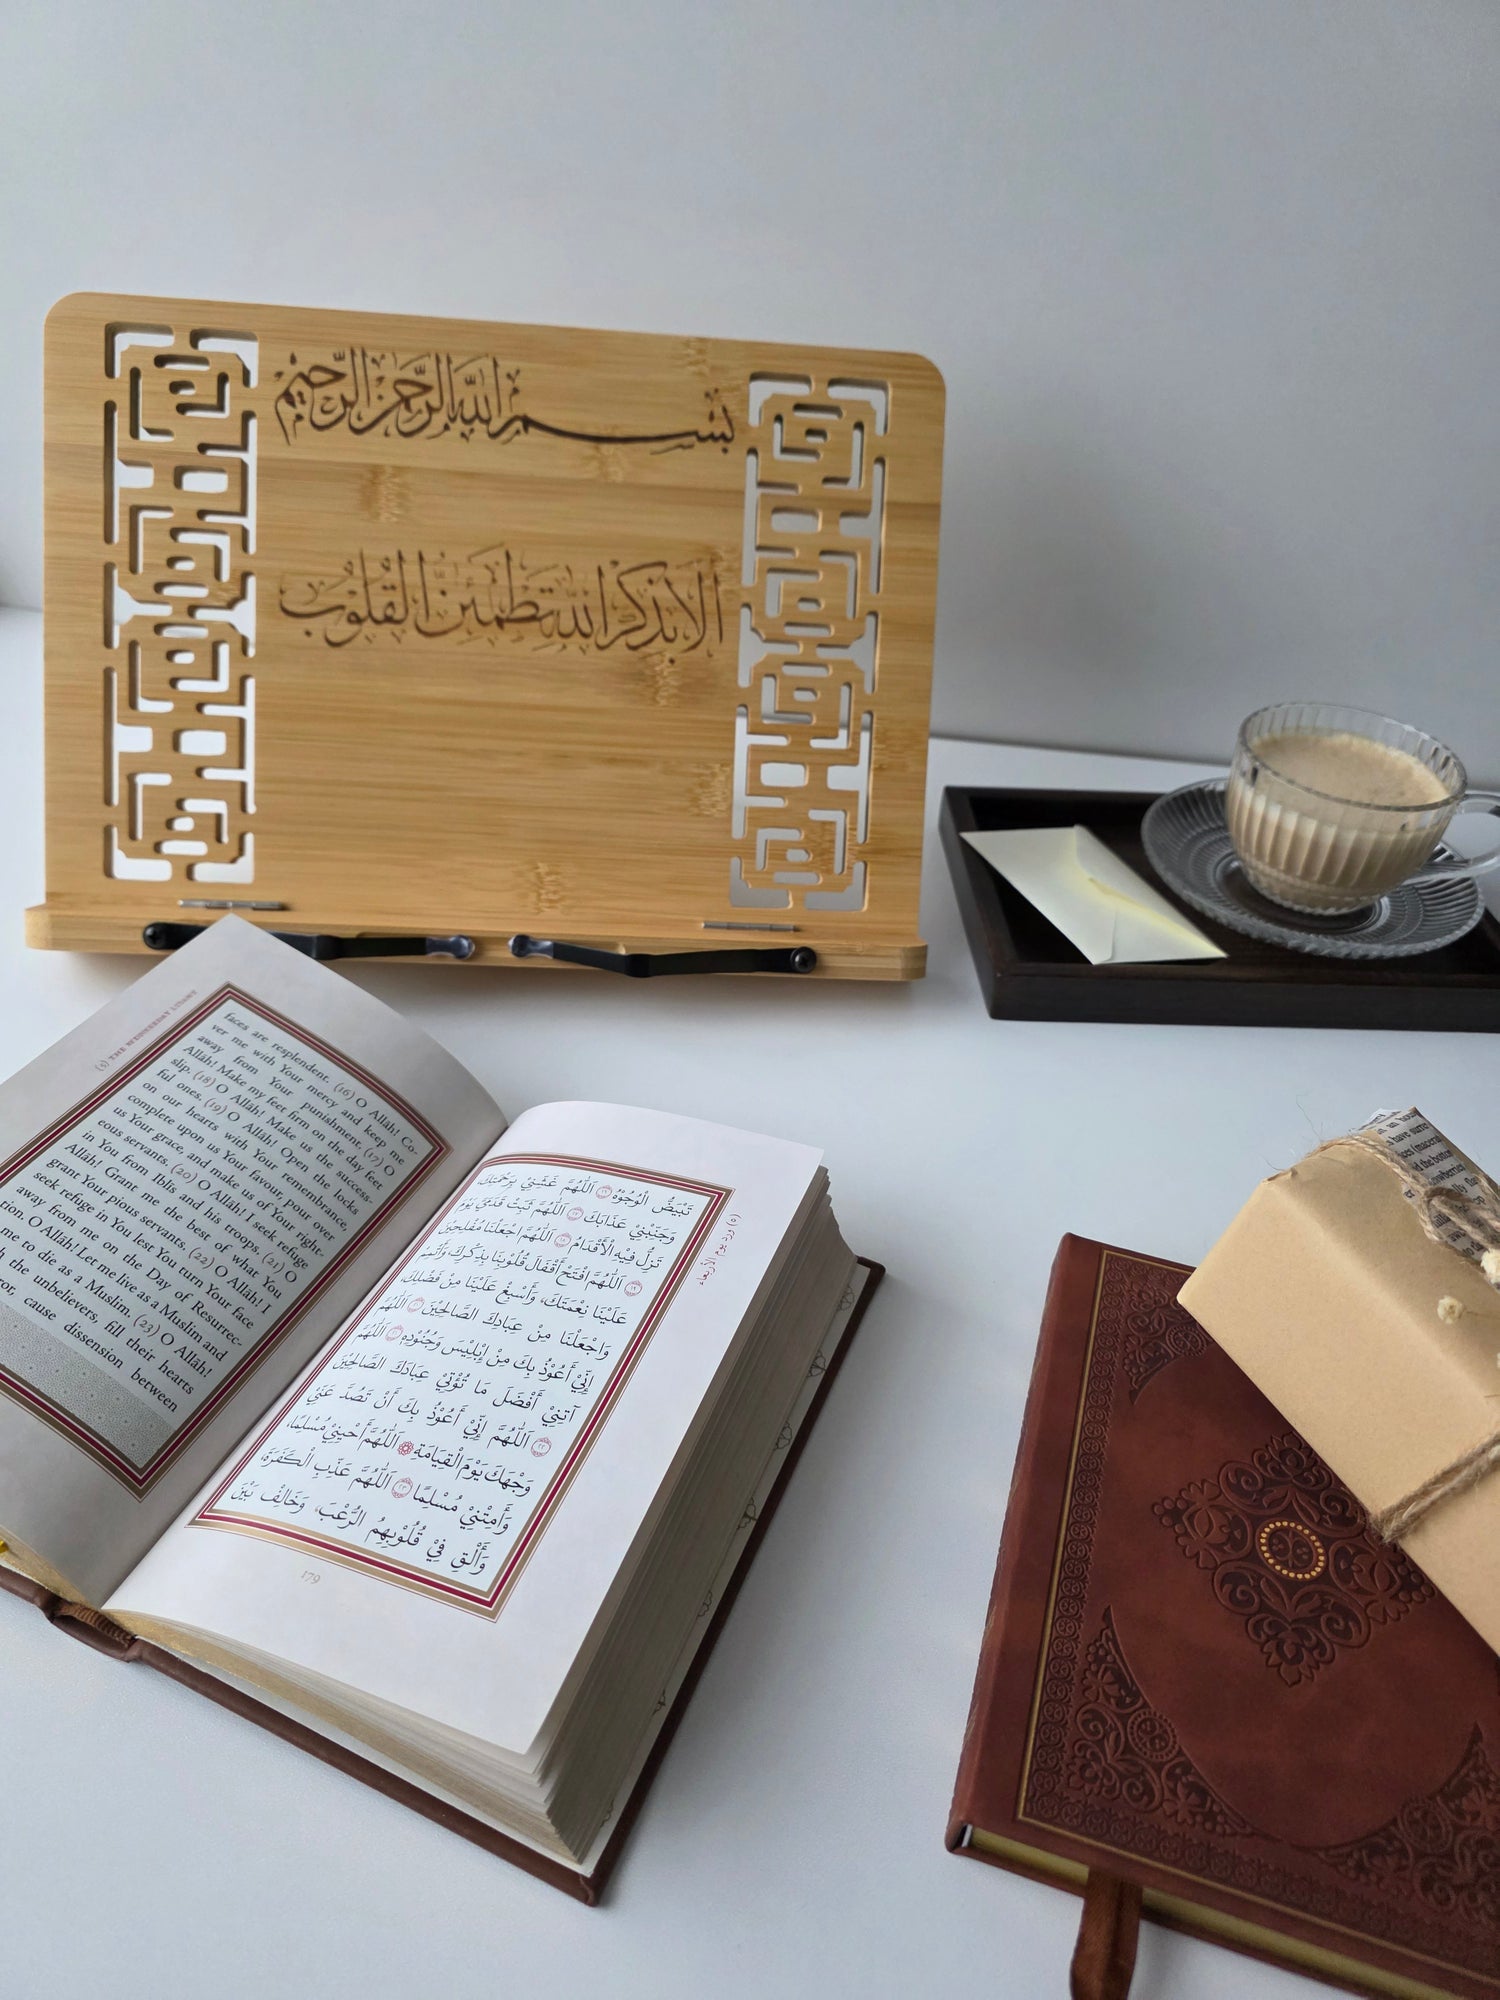 بسم الله الرحمن الرحيم
ألا بذكر الله تطمئن القلوب
(5) THE WEDNESDAY LITANY
faces are resplendent. (16) O Allāh! Co-
ver me with Your mercy and keep me
away from Your punishment. (17) O
Allāh! Make my feet firm on the day feet
slip. (18) O Allāh! Make us the success-
ful ones. (19) O Allāh! Open the locks
on our hearts with Your remembrance,
complete upon us Your favour, pour over
us Your grace, and make us of Your right-
eous servants. (20) O Allāh! I seek refuge
in You from Iblīs and his troops. (21) O
Allāh! Grant me the best of what You
grant Your pious servants. (22) O Allāh! I
seek refuge in You lest You turn Your face
away from me on the Day of Resurrec-
tion. O Allāh! Let me live as a Muslim and
me to die as a Muslim. (23) O Allāh!
the unbelievers, fill their hearts
cause dissension between
(٥) ورد يوم الأربعاء
تَبْيَضُّ الْوُجُوْهُ ١٦ اَللّٰهُمَّ غَشِّنِيْ بِرَحْمَتِكَ،
وَجَنِّبْنِيْ عَذَابَكَ ١٧ اَللّٰهُمَّ ثَبِّتْ قَدَمَيَّ يَوْمَ
تَزِلُّ فِيْهِ الْأَقْدَامُ ١٨ اَللّٰهُمَّ اجْعَلْنَا مُفْلِحِيْنَ
١٩ اَللّٰهُمَّ افْتَحْ أَقْفَالَ قُلُوْبِنَا بِذِكْرِكَ، وَأَتْمِمْ
عَلَيْنَا نِعْمَتَكَ، وَأَسْبِغْ عَلَيْنَا مِنْ فَضْلِكَ،
وَاجْعَلْنَا مِنْ عِبَادِكَ الصَّالِحِيْنَ ٢٠ اَللّٰهُمَّ
إِنِّيْ أَعُوْذُ بِكَ مِنْ إِبْلِيْسَ وَجُنُوْدِهِ ٢١ اَللّٰهُمَّ
آتِنِيْ أَفْضَلَ مَا تُؤْتِيْ عِبَادَكَ الصَّالِحِيْنَ
٢٢ اَللّٰهُمَّ إِنِّيْ أَعُوْذُ بِكَ أَنْ تَصُدَّ عَنِّيْ
وَجْهَكَ يَوْمَ الْقِيَامَةِ اَللّٰهُمَّ أَحْيِنِيْ مُسْلِمًا،
وَأَمِتْنِيْ مُسْلِمًا ٢٣ اَللّٰهُمَّ عَذِّبِ الْكَفَرَةَ،
وَأَلْقِ فِيْ قُلُوْبِهِمُ الرُّعْبَ، وَخَالِفْ بَيْنَ
179